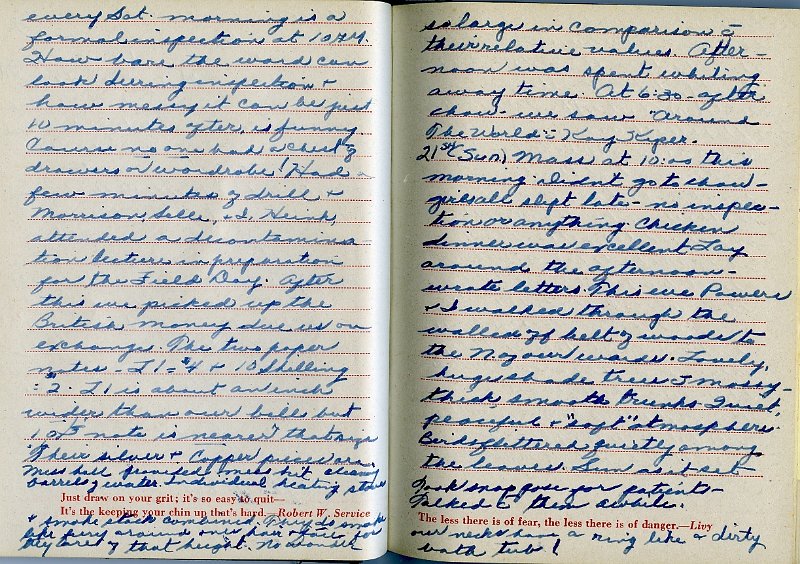 every Sat. morning is a
formal inspection at 10 AM.
How bare the ward can
look during inspection &
how messy it can be just
10 minutes after, is funny
Course no one had a chest of
drawers or wardrobe! Had a
few minutes of drill &
Morrison, Selle, & I, Heink,
attended a decontamina
tion lecture in preparation
for the Field Day. After
this we picked up the
British money due us on
exchange. The two paper
notes - £1 = $4 & 10 Shilling
= $2. £1 is about an inch
wider than our bills but
10 note is nearer the size
Their silver & copper pieces are
Mess hall provided mess kit cleaning
barrels of water. Individual heating stove
Just draw on your grit; it's so easy to quit—
It's the keeping your chin up that's hard.—Robert W. Service
& smoke stack combined. They do smoke
like fury around one's hair & face for
they are of that height. No wonder
so large in comparison c̄
their relative values. After-
noon was spent whiling
away time. At 6:30 after
chow we saw "Around
The World" - Kay Kyser.
21st (Sun) Mass at 10:00 this
morning. Didn't go to chow -
girls all slept late - no inspec-
tion or anything. Chicken
dinner was excellent. Lay
around the afternoon -
wrote letters. This eve Powers
& I walked through the
walled off belt of woods to
the N of our wards. Lovely,
huge shade trees & mossy -
thick, smooth trunks. Quiet,
peaceful & "soft" atmosphere.
Birds fluttered quietly among
the leaves. Sun as it set
Took snap pose for patients -
Talked c̄ them awhile.
The less there is of fear, the less there is of danger.—Livy
our necks have a ring like a dirty
bath tub!